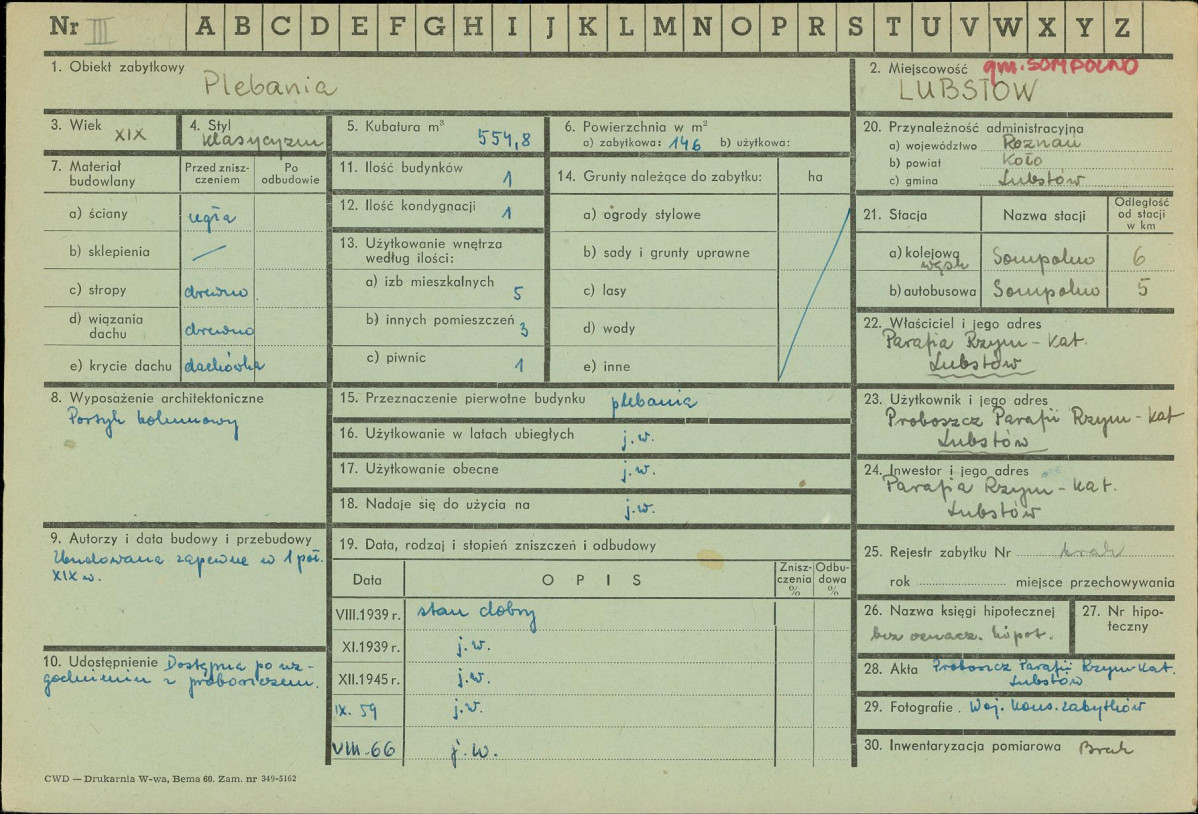 Nr III A B C D E F G H I J K L M N O P R S T U V W X Y Z
1. Obiekt zabytkowy
Plebania
2. Miejscowość gm. SOMPOLNO
LUBSTÓW
3. Wiek
XIX
4. Styl
klasycyzm
5. Kubatura m³
554,8
6. Powierzchnia w m²
a) zabytkowa: 146 b) użytkowa:
7. Materiał budowlany
Przed zniszczeniem
Po odbudowie
a) ściany cegła
b) sklepienia —
c) stropy drewno
d) wiązania dachu drewno
e) krycie dachu dachówka
8. Wyposażenie architektoniczne
Portyk kolumnowy
9. Autorzy i data budowy i przebudowy
Zbudowana zapewne w 1 poł.
XIX w.
10. Udostępnienie Dostępna po uz-
godnieniu z proboszczem.
11. Ilość budynków 1
12. Ilość kondygnacji 1
13. Użytkowanie wnętrza
według ilości:
a) izb mieszkalnych 5
b) innych pomieszczeń 3
c) piwnic 1
14. Grunty należące do zabytku: ha
a) ogrody stylowe
b) sady i grunty uprawne
c) lasy
d) wody
e) inne
15. Przeznaczenie pierwotne budynku plebania
16. Użytkowanie w latach ubiegłych j.w.
17. Użytkowanie obecne j.w.
18. Nadaje się do użycia na j.w.
19. Data, rodzaj i stopień zniszczeń i odbudowy
Data OPIS Zniszczenia % Odbudowa %
VIII.1939 r. stan dobry
XI.1939 r. j.w.
XII.1945 r. j.w.
IX. 59 j.w.
VIII-66 j.w.
20. Przynależność administracyjna
a) województwo Poznań
b) powiat Koło
c) gmina Lubstów
21. Stacja Nazwa stacji Odległość od stacji w km
a) kolejowa wąsk Sompolno 6
b) autobusowa Sompolno 5
22. Właściciel i jego adres
Parafia Rzym-Kat.
Lubstów
23. Użytkownik i jego adres
Proboszcz Parafii Rzym-Kat
Lubstów
24. Inwestor i jego adres
Parafia Rzym-Kat.
Lubstów
25. Rejestr zabytku Nr brak
rok miejsce przechowywania
26. Nazwa księgi hipotecznej
bez oznacz. hipot.
27. Nr hipoteczny
28. Akta Proboszcz Parafii Rzym-Kat.
Lubstów
29. Fotografie. Woj. Kons. Zabytków
30. Inwentaryzacja pomiarowa Brak
CWD — Drukarnia W-wa, Bema 60. Zam. nr 349-5162